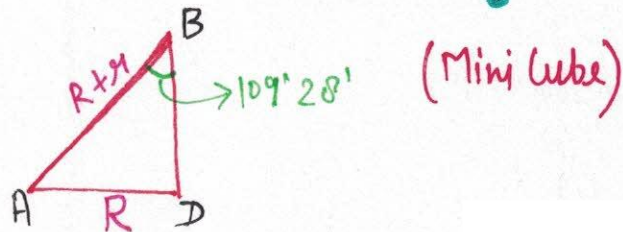 B
R+r
109° 28'
(Mini Cube)
A
R
D